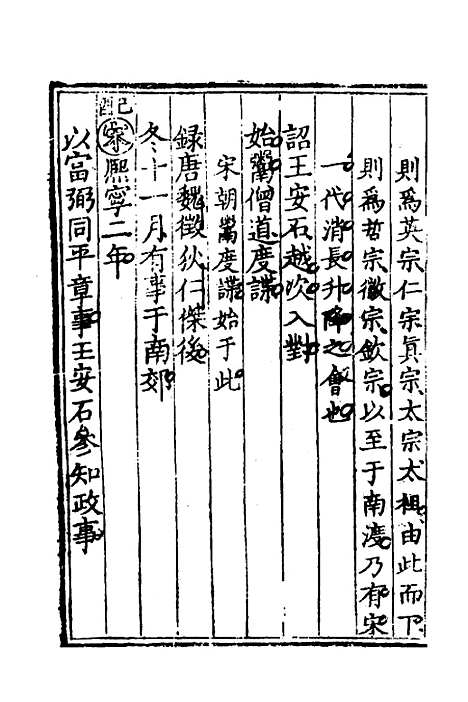 則爲英宗仁宗眞宗太宗太祖由此而下
則爲哲宗徽宗欽宗以至于南渡乃有宋
一代消長升降之會也
詔王安石越次入對
始鬻僧道度諜
宋朝鬻度諜始于此
録唐魏徵狄仁傑後
冬十一月有事于南郊
己酉
熈寧二年
以富弼同平章事王安石參知政事